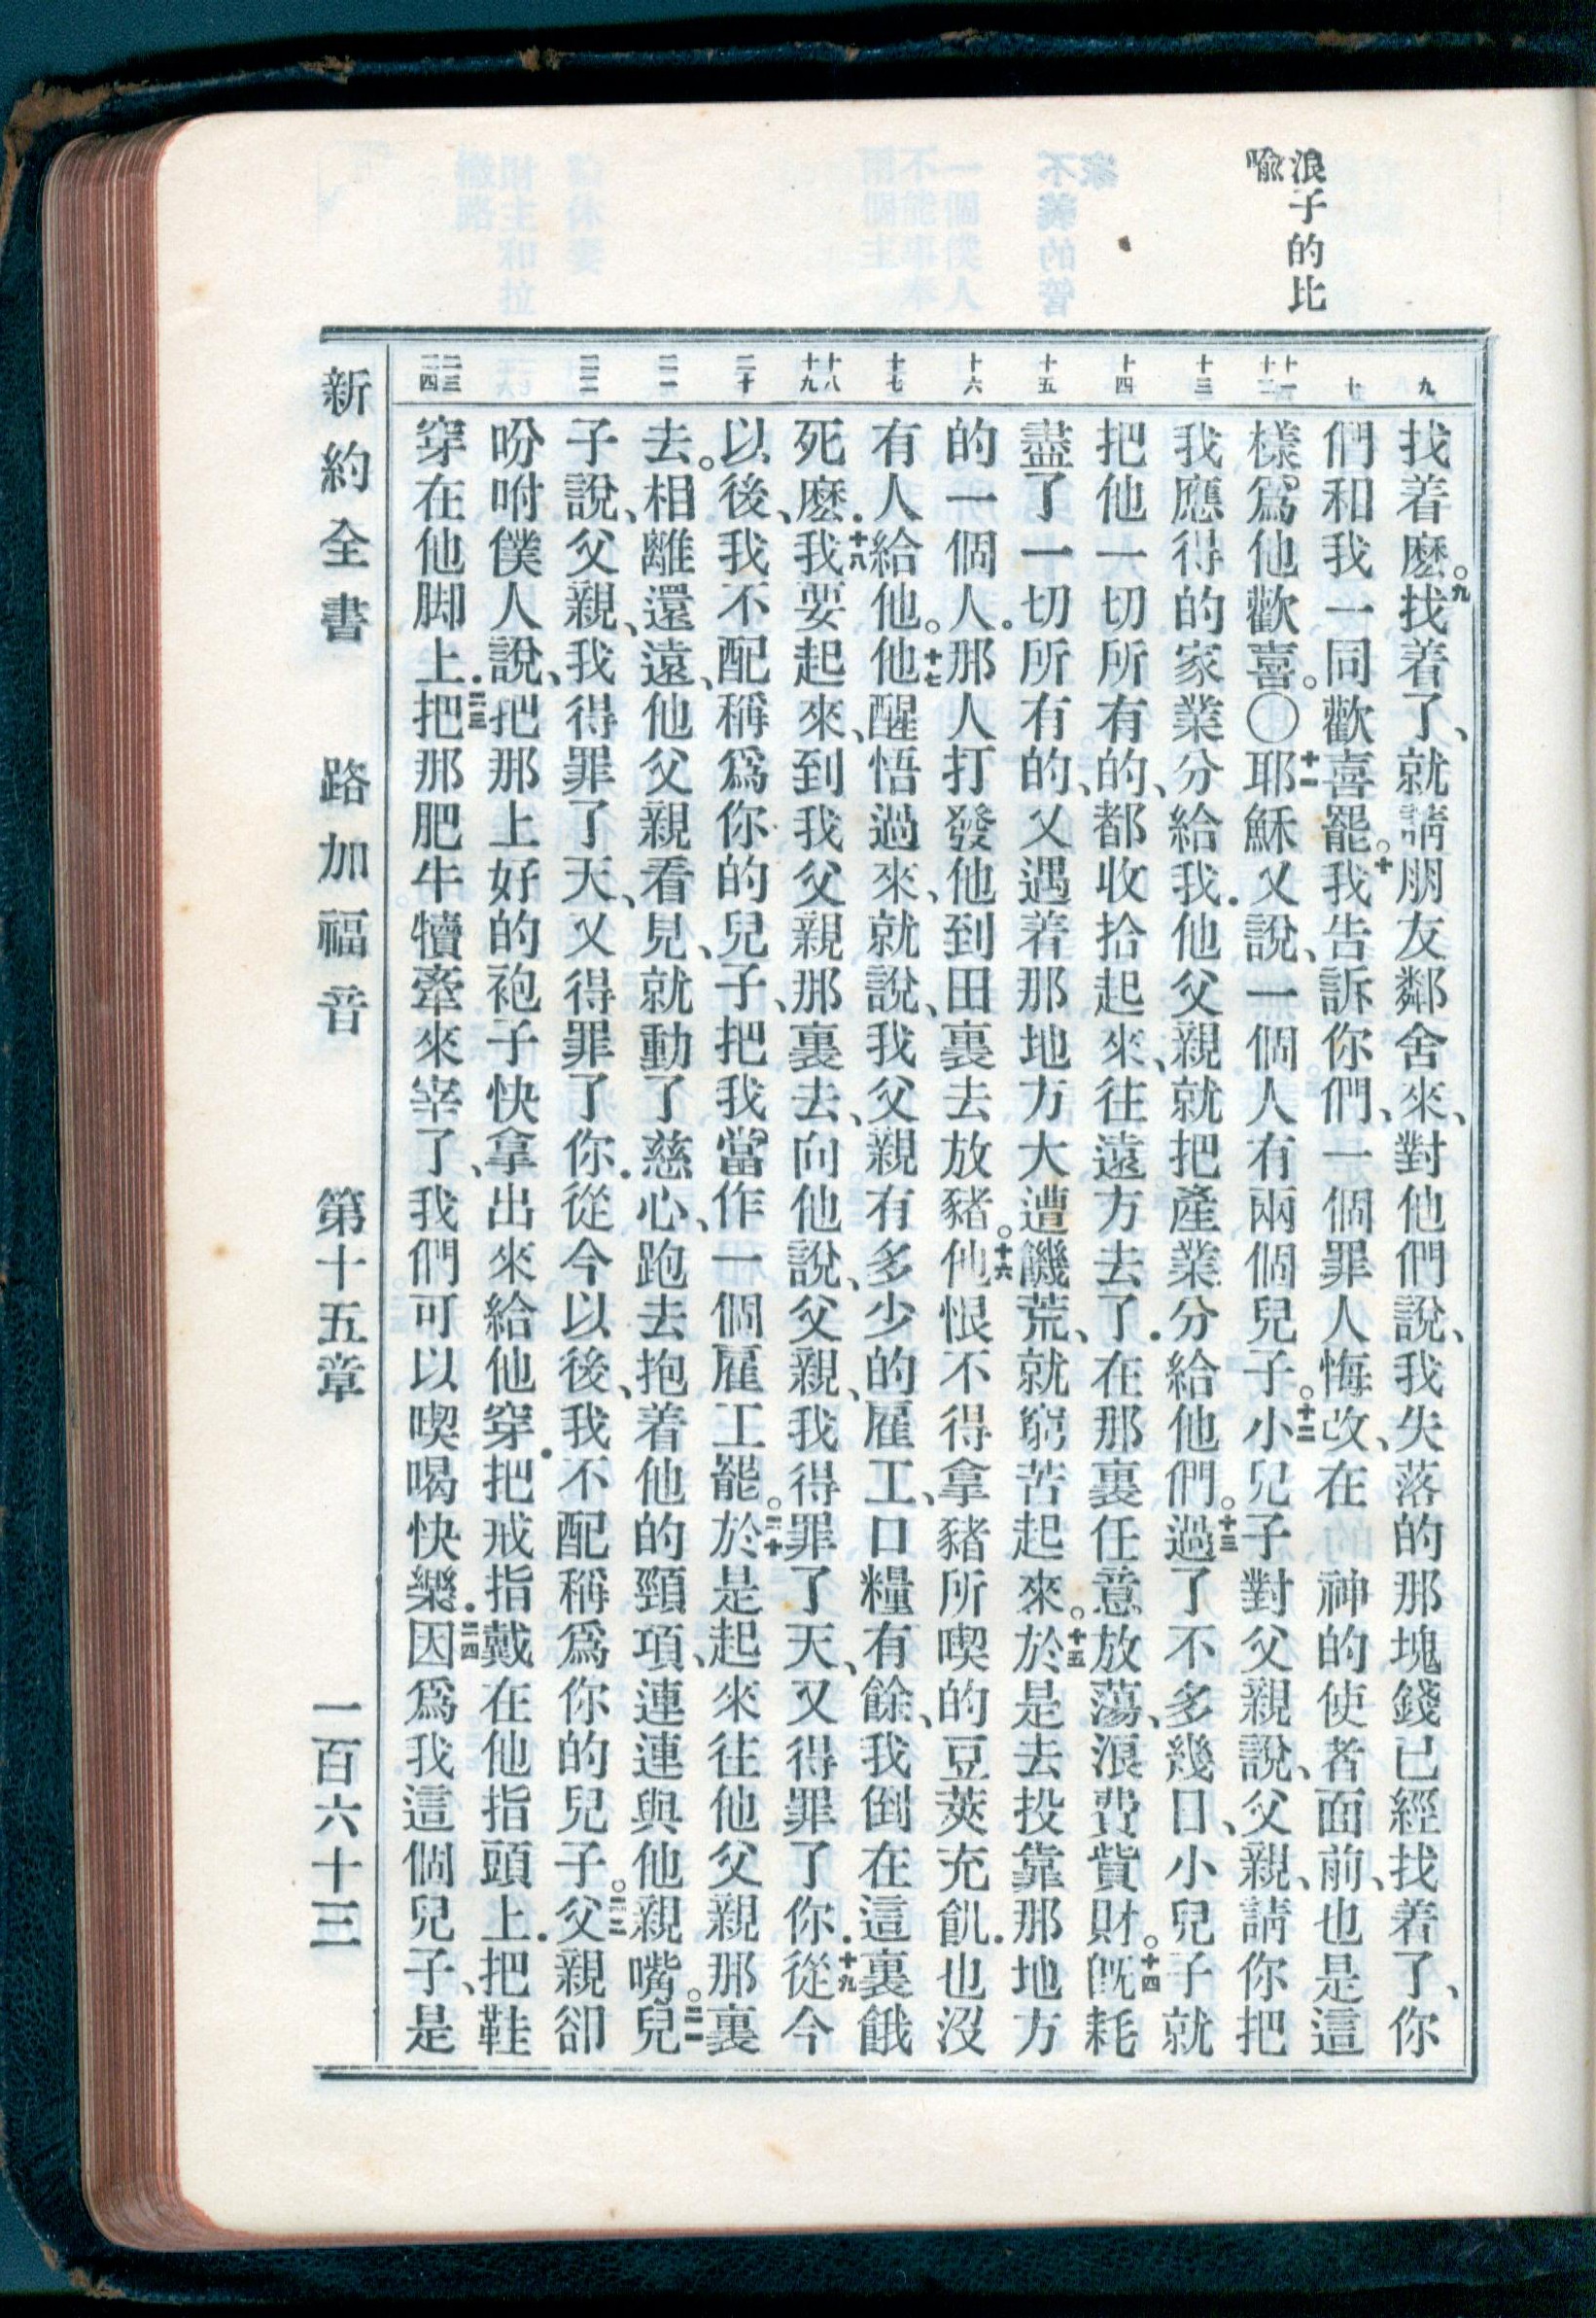 浪子的比
喻
九
十
十一
十二
十三
十四
十五
十六
十七
十八
十九
二十
二一
二二
二三
二四
找着麽。九找着了、就請朋友鄰舍來、對他們說、我失落的那塊錢已經找着了、你
們和我一同歡喜罷。十我告訴你們、一個罪人悔改、在 神的使者面前、也是這
樣爲他歡喜。〇十一耶穌又說、一個人有兩個兒子。十二小兒子對父親說、父親、請你把
我應得的家業分給我．他父親就把產業分給他們。十三過了不多幾日、小兒子就
把他一切所有的、都收拾起來、往遠方去了．在那裏任意放蕩、浪費貲財。十四旣耗
盡了一切所有的、又遇着那地方大遭饑荒、就窮苦起來。十五於是去投靠那地方
的一個人．那人打發他到田裏去放豬。十六他恨不得拿豬所喫的豆莢充飢．也沒
有人給他。十七他醒悟過來、就說、我父親有多少的雇工、口糧有餘、我倒在這裏餓
死麽．十八我要起來、到我父親那裏去、向他說、父親、我得罪了天、又得罪了你．十九從今
以後、我不配稱爲你的兒子、把我當作一個雇工罷。二十於是起來往他父親那裏
去。相離還遠、他父親看見、就動了慈心、跑去抱着他的頸項、連連與他親嘴。二一兒
子說、父親、我得罪了天、又得罪了你．從今以後、我不配稱爲你的兒子。二二父親卻
吩咐僕人說、把那上好的袍子快拿出來給他穿．把戒指戴在他指頭上．把鞋
穿在他脚上．二三把那肥牛犢牽來宰了、我們可以喫喝快樂．二四因爲我這個兒子、是
新約全書 路加福音 第十五章 一百六十三